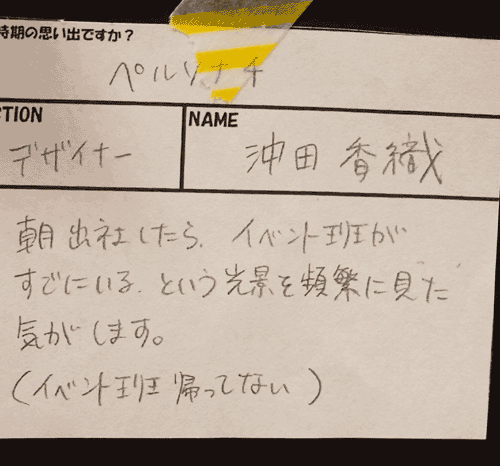 時期の思い出ですか？
ペルソナ4
CTION
デザイナー
NAME
沖田 香織
朝出社したら、イベント班が
すでにいる、という光景を頻繁に見た
気がします。
(イベント班帰ってない)